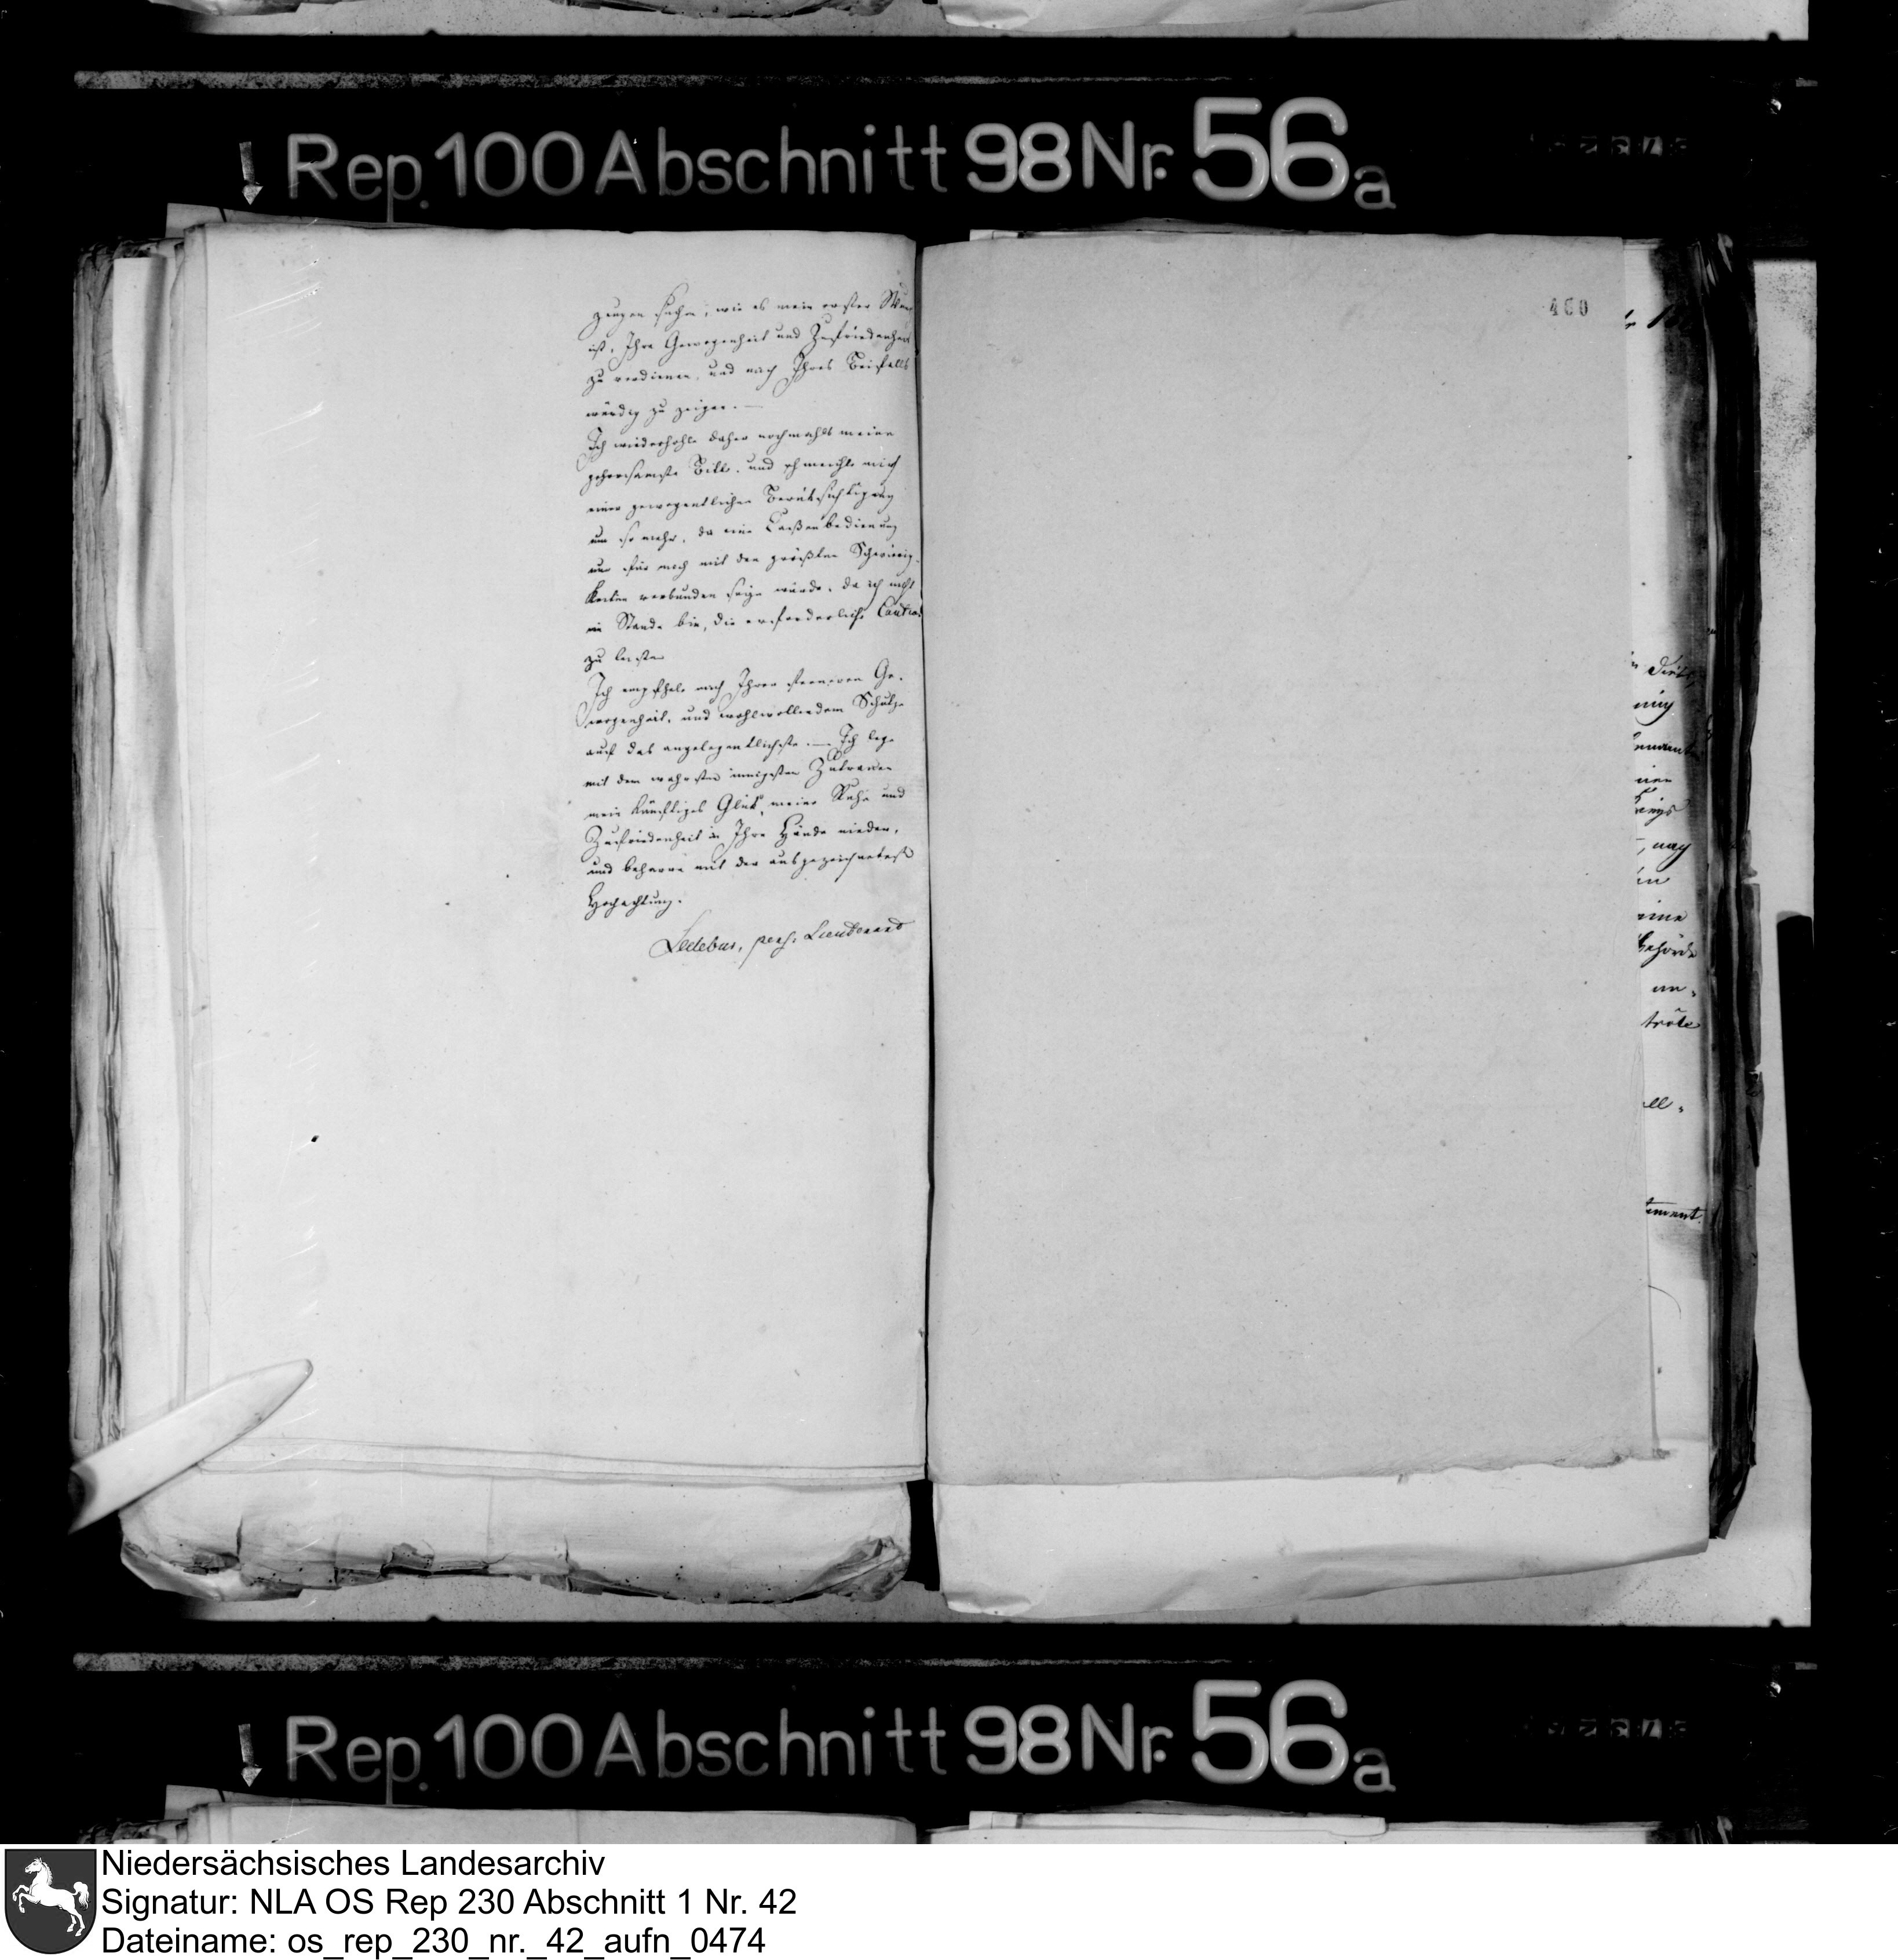 Rep. 100 Abschnitt 98 Nr. 56a
zeugen suchen, wie es mein erster
ist, Ihre Gewogenheit und Zufriedenheit
zu verdienen, und mich Ihres Beifalls
würdig zu zeigen. —
Ich wiederhohle daher nochmahls meine
gehorsamste Bitte, und schmeichle mich
einer gewogentlichen Berüksichtigung
um so mehr, da eine Caßenbedienung
nur für mich mit den größten Schwierig-
keiten verbunden seyn würde, da ich nicht
im Stande bin, die erforderliche Caution
zu leisten
Ich empfehle mich Ihrer ferneren Ge-
wogenheit, und wohlwollendem Schutze
auf das angelegentlichste. — Ich lege
mit dem wahrsten innigsten Zutrauen
mein künftiges Glük, meine Ruhe und
Zufriedenheit in Ihre Hände nieder,
und beharre mit der ausgezeichnetest
Hochachtung.
Ledebur, pens. Lieutenant
460
ning
inen
, auch
eine
behörde
un-
ell.
tement.
Rep. 100 Abschnitt 98 Nr. 56a
Niedersächsisches Landesarchiv
Signatur: NLA OS Rep 230 Abschnitt 1 Nr. 42
Dateiname: os_rep_230_nr._42_aufn_0474